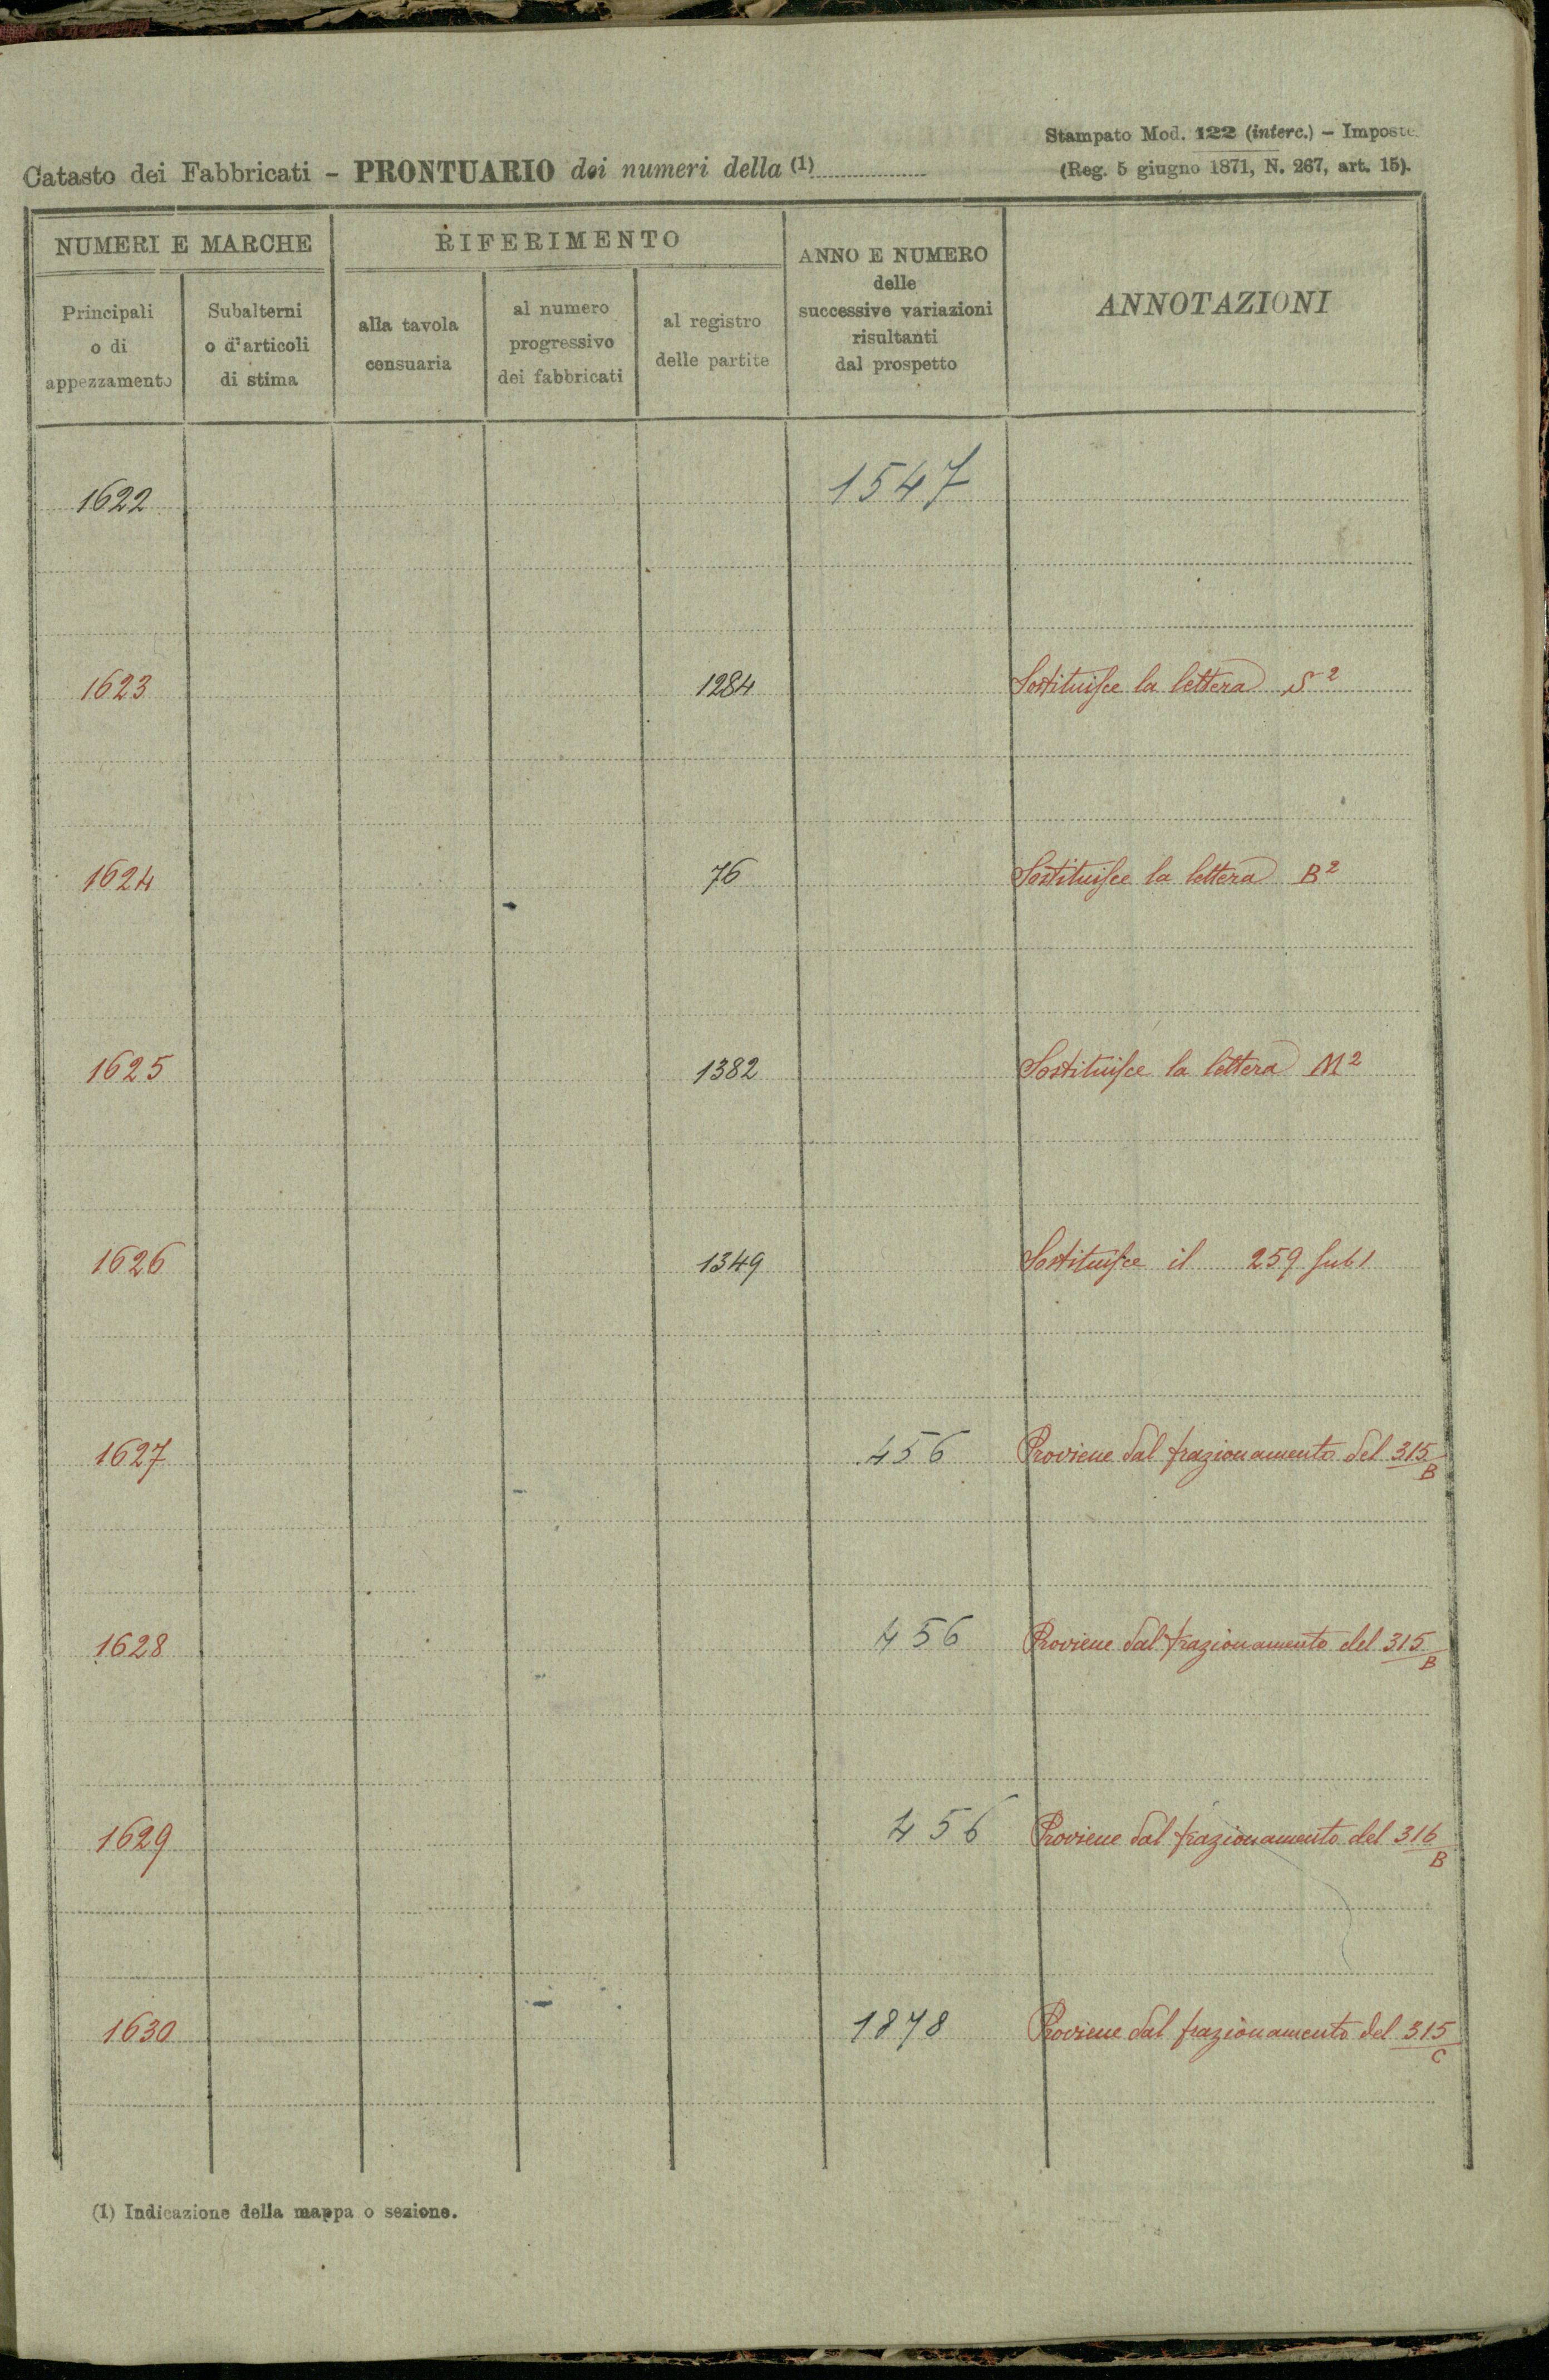 Stampato Mod. 122 (interc.) – Imposte.
Catasto dei Fabbricati – PRONTUARIO dei numeri della (1)
(Reg. 5 giugno 1871, N. 267, art. 15).
NUMERI E MARCHE
RIFERIMENTO
ANNO E NUMERO
delle
successive variazioni
risultanti
dal prospetto
ANNOTAZIONI
Principali
o di
appezzamento
Subalterni
o d'articoli
di stima
alla tavola
censuaria
al numero
progressivo
dei fabbricati
al registro
delle partite
1622 1547
1623 1284 Sostituisce la lettera S²
1624 76 Sostituisce la lettera B²
1625 1382 Sostituisce la lettera M²
1626 1349 Sostituisce il 259 sub 1
1627 456 Proviene dal frazionamento del 315/B
1628 456 Proviene dal frazionamento del 315/B
1629 456 Proviene dal frazionamento del 316/B
1630 1878 Proviene dal frazionamento del 315/C
(1) Indicazione della mappa o sezione.